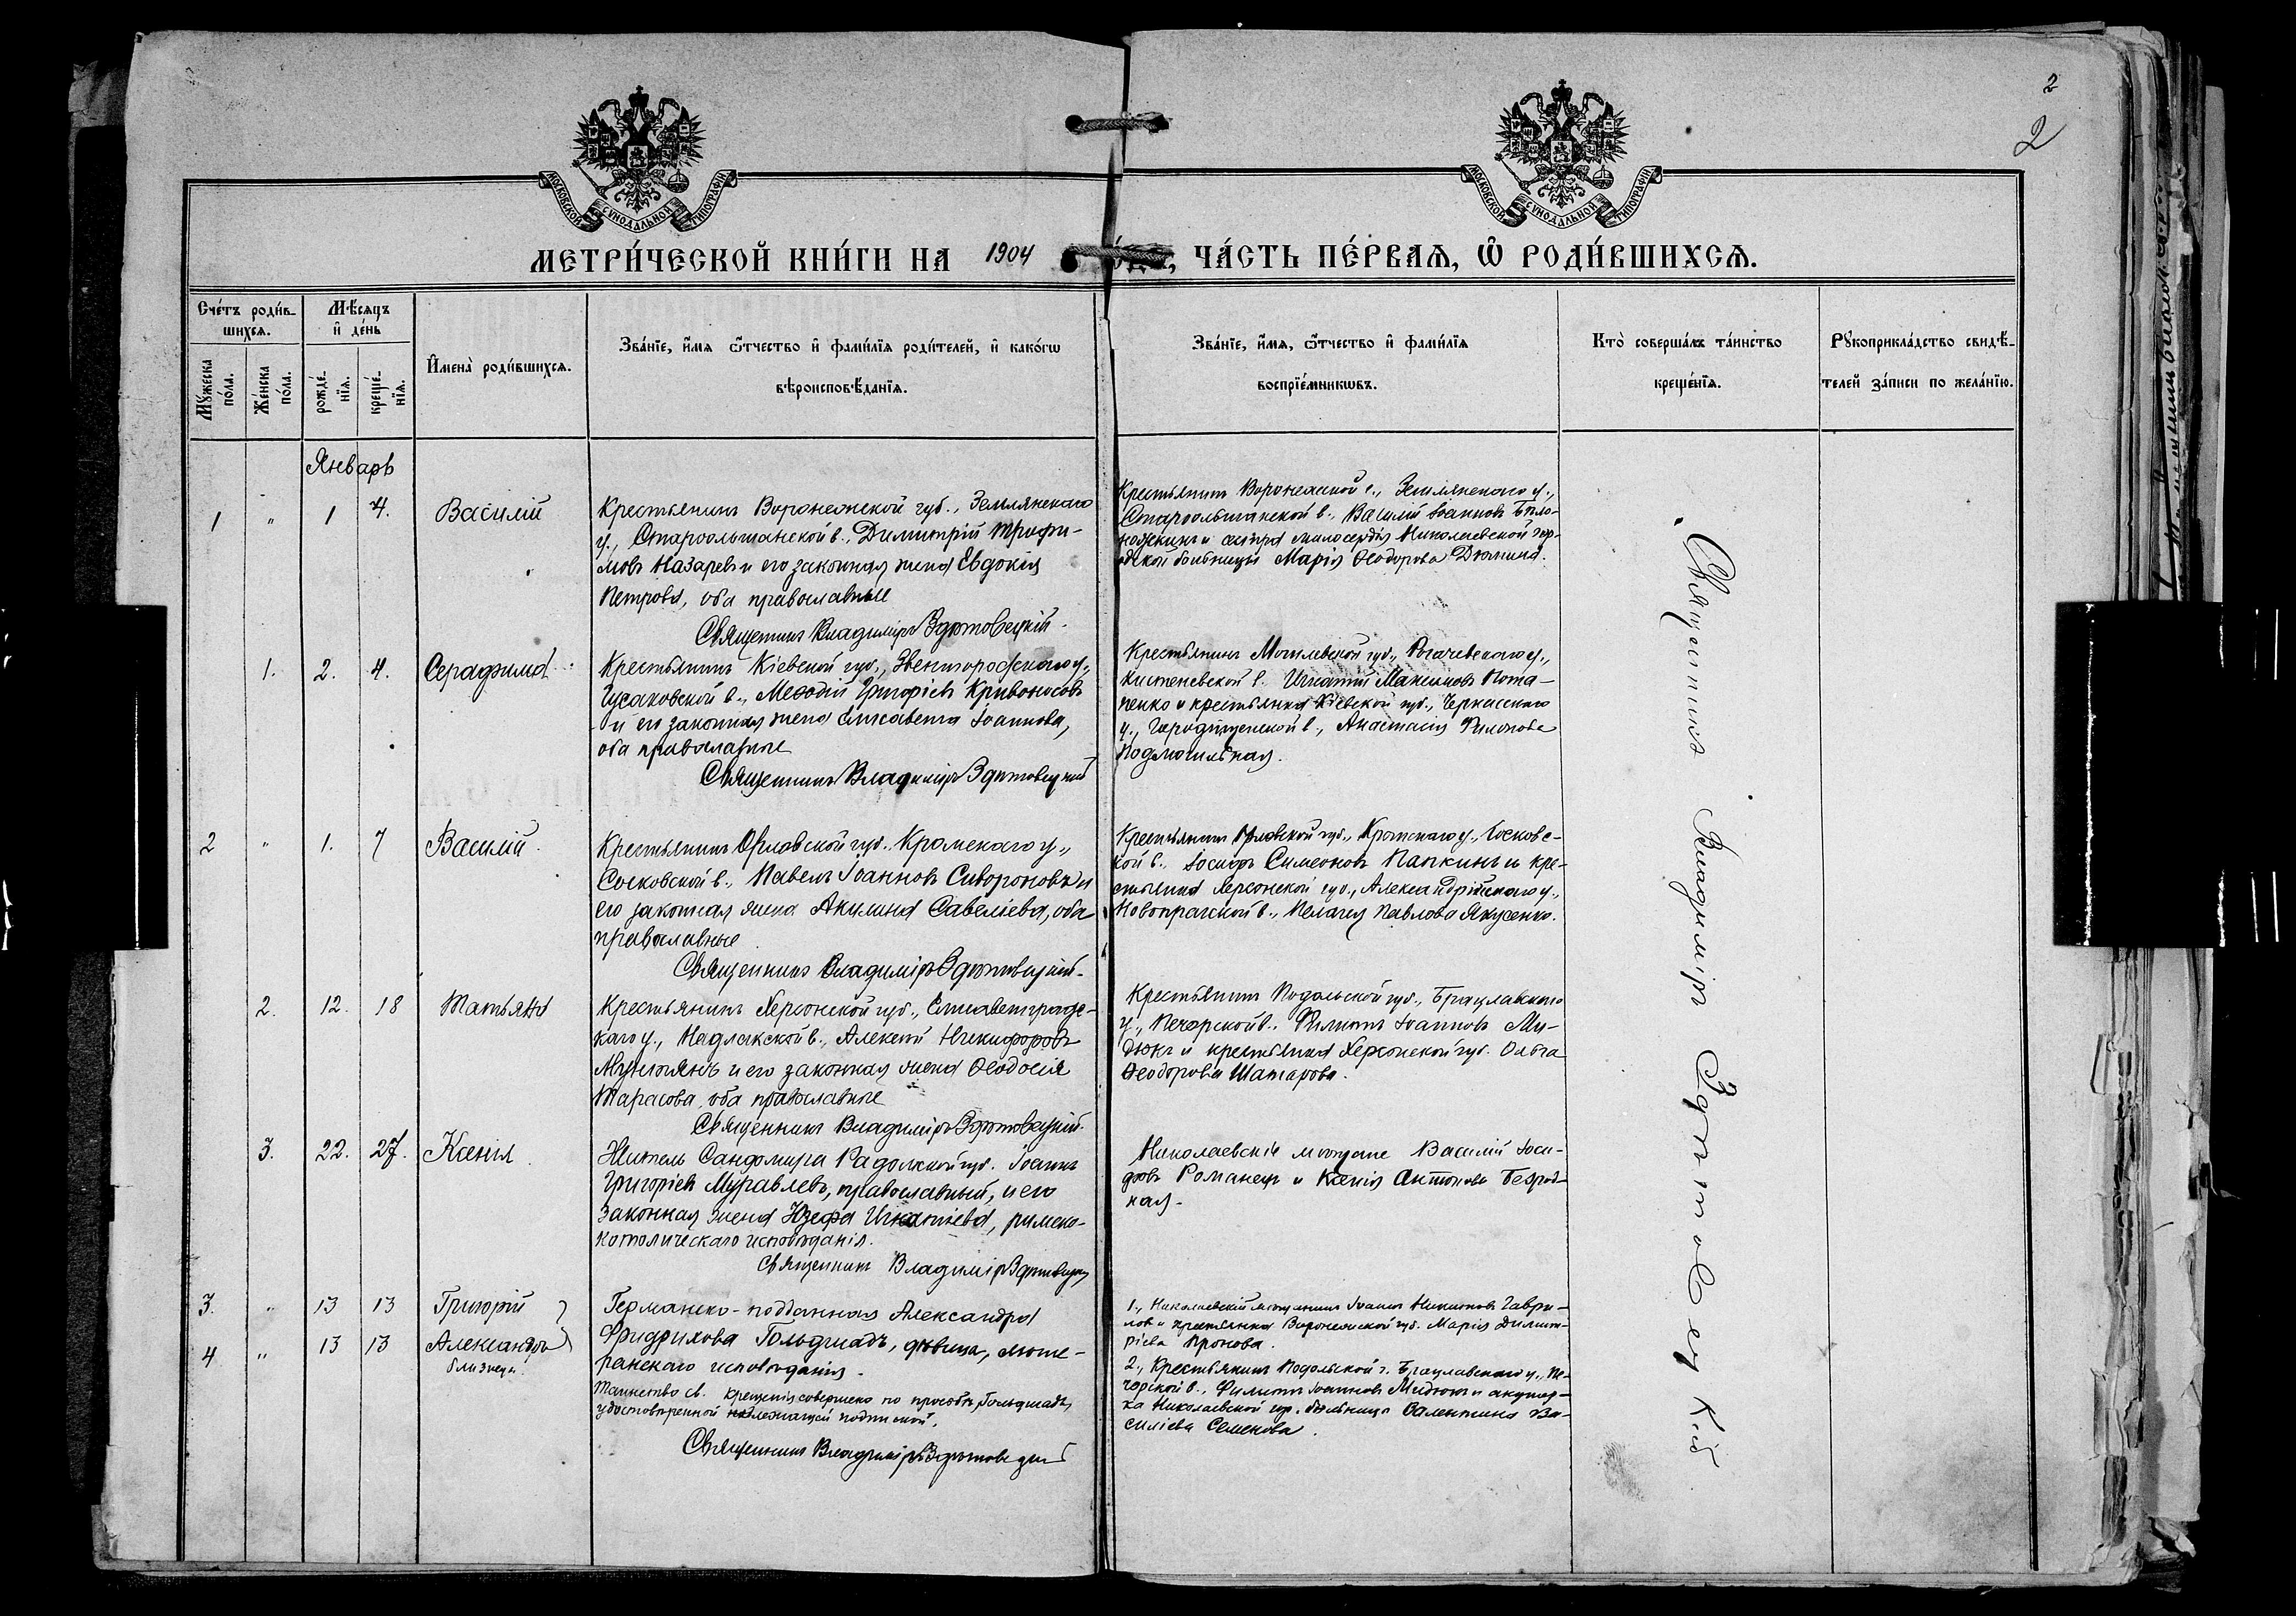 2
2
МОСКОВСКОЙ СѴНОДАЛЬНОЙ ТИПОГРАФІИ
МОСКОВСКОЙ СѴНОДАЛЬНОЙ ТИПОГРАФІИ
МЕТРИ́ЧЕСКОЙ КНИ́ГИ НА 1904
ЧА́СТЬ ПЕ́РВАѦ, Ѡ҆ РОДИ́ВШИХСѦ.
Сче́тъ роди́в-
шихсѧ.
Мѣ́сѧцъ
и҆ де́нь
Мꙋ́жеска
по́ла.
Же́нска
по́ла.
рожде́-
нїѧ.
креще́-
нїѧ.
И҆мена̀ роди́вшихсѧ.
Зва́нїе, и҆́мѧ ѻ҆́тчество и҆ фами́лїѧ роди́телей, и҆ како́гѡ
вѣроисповѣ́данїѧ.
Зва́нїе, и҆́мѧ, ѻ҆́тчество и҆ фами́лїѧ
воспрїе́мникѡвъ.
Кто̀ соверша́лъ та́инство
креще́нїѧ.
Рꙋкоприкла́дство свидѣ́-
телей за́писи по жела́нїю.
Январь
1 " 1 4. Василій
Крестьянинъ Воронежской губ., Землянскаго
у., Староольшанской в., Димитрій Трофи-
мовъ Назаревъ и его законная жена Евдокія
Петрова, оба православные
Священникъ Владиміръ Здитовецкій.
Крестьянинъ Воронежской г., Землянскаго у.,
Староольшанской в., Василій Іоанновъ Бѣло-
и сестра милосердія Николаевской гор-
одской больницы Марія Ѳеодорова Дюмина.
1. 2. 4. Серафима
Крестьянинъ Кіевской губ., Звенигородскаго у.,
Гусаковской в., Меѳодій Григоріевъ Кривоносовъ
и его законная жена Елисавета Іоаннова,
оба православные
Священникъ Владиміръ Здитовецкій
Крестьянинъ Могилевской губ., Рогачевскаго у.,
Кистеневской в. Игнатій Максимовъ Пота-
пенко и крестьянка Кіевской губ., Черкасскаго
у., Городищенской в., Анастасія Филонова
Подмогильная.
2 " 1. 7 Василій.
Крестьянинъ Орловской губ. Кромскаго у.,
Сосковской в., Павелъ Іоанновъ Сивороновъ и
его законная жена Акулина Савеліева, оба
православные
Священникъ Владиміръ Здитовецкій.
Крестьянинъ Орловской губ., Кромскаго у., Сосковс-
кой в., Іосифъ Симеоновъ Папкинъ и кре-
стьянка Херсонской губ., Александрійскаго у.,
Новопражской в., Пелагія Павлова Якусенко.
2. 12. 18 Татьяна
Крестьянинъ Херсонской губ., Елисаветградс-
каго у., Надлакской в., Алексій Никифоровъ
Мунтянъ и его законная жена Ѳеодосія
Тарасова, оба православные
Священникъ Владиміръ Здитовецкій.
Крестьянинъ Подольской губ., Брацлавскаго
у., Печорской в., Филиппъ Іоанновъ Ми-
дюкъ и крестьянка Херсонской губ. Ольга
Ѳеодорова Шатарова.
3. 22. 27. Ксенія
Житель Сандомира Радомской губ. Іоаннъ
Григоріевъ Муравлевъ, православный, и его
законная жена Юзефа Игнатіева, римско-
католическаго исповѣданія.
Священникъ Владиміръ Здитовецкій
Николаевскіе мѣщане Василій Іоси-
фовъ Романецъ и Ксенія Антонова Безрод-
ная.
3. " 13 13 Григорій
4 " 13 13 Александръ
близнецы.
Германско-подданная Александра
Фридрихова Гольдшадъ, дѣвица, люте-
ранскаго исповѣданія.
Таинство св. крещенія совершено по просьбѣ Гольдшадъ,
удостовѣренной надлежащей подпиской.
Священникъ Владиміръ Здитовецкій
1., Николаевскій мѣщанинъ Іоаннъ Никитовъ Гаври-
ловъ и крестьянка Воронежской губ. Марія Димит-
ріева Пронова.
2., Крестьянинъ Подольской г. Брацлавскаго у., Пе-
чорской в., Филиппъ Іоанновъ Мидюкъ и акушер-
ка Николаевской гор. больницы Валентина Ва-
силіева Семенова.
Священникъ Владиміръ Здитовецкій